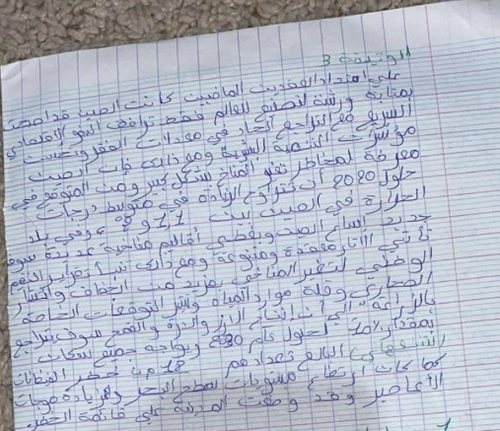 الوثيقة 3
على امتداد العقدين الماضيين كانت الصين قد أضحت
بمثابة ورشة لتصنيع العالم فقط ترافق النمو الاقتصادي
السريع مع التراجع الحاد في معدلات الفقر وتحسن
مؤشرات التنمية البشرية ومع ذلك فإن الصين
معرضة لمخاطر تغير المناخ بشكل كبير ومن المتوقع في
حلول 2020 أن تتراوح الزيادة في متوسط درجات
الحرارة في الصين بين 1,1 و وفي بلد
اتساع الصين ويغطي أقاليم مناخية عديدة سوف
تأتي الآثار معقدة ومتنوعة ومع ذلك
الوطني لتغير المناخي بمزيد من الجفاف وانتشار
الصحاري وقلة موارد المياه وتشير التوقعات الخاصة
بالزراعة إلى أن إنتاج الأرز والذرة والقمح سوف يتراجع
بمقدار 10% لحلول عام 2030 ويواجه جميع سكان
(شنغهاي) البالغ تعدادهم 18 خطر الفيضانات
كما كان ارتفاع مستويات سطح البحر وازيادة موجات
الأعاصير وقد وضعت المدينة على قائمة الخطر.